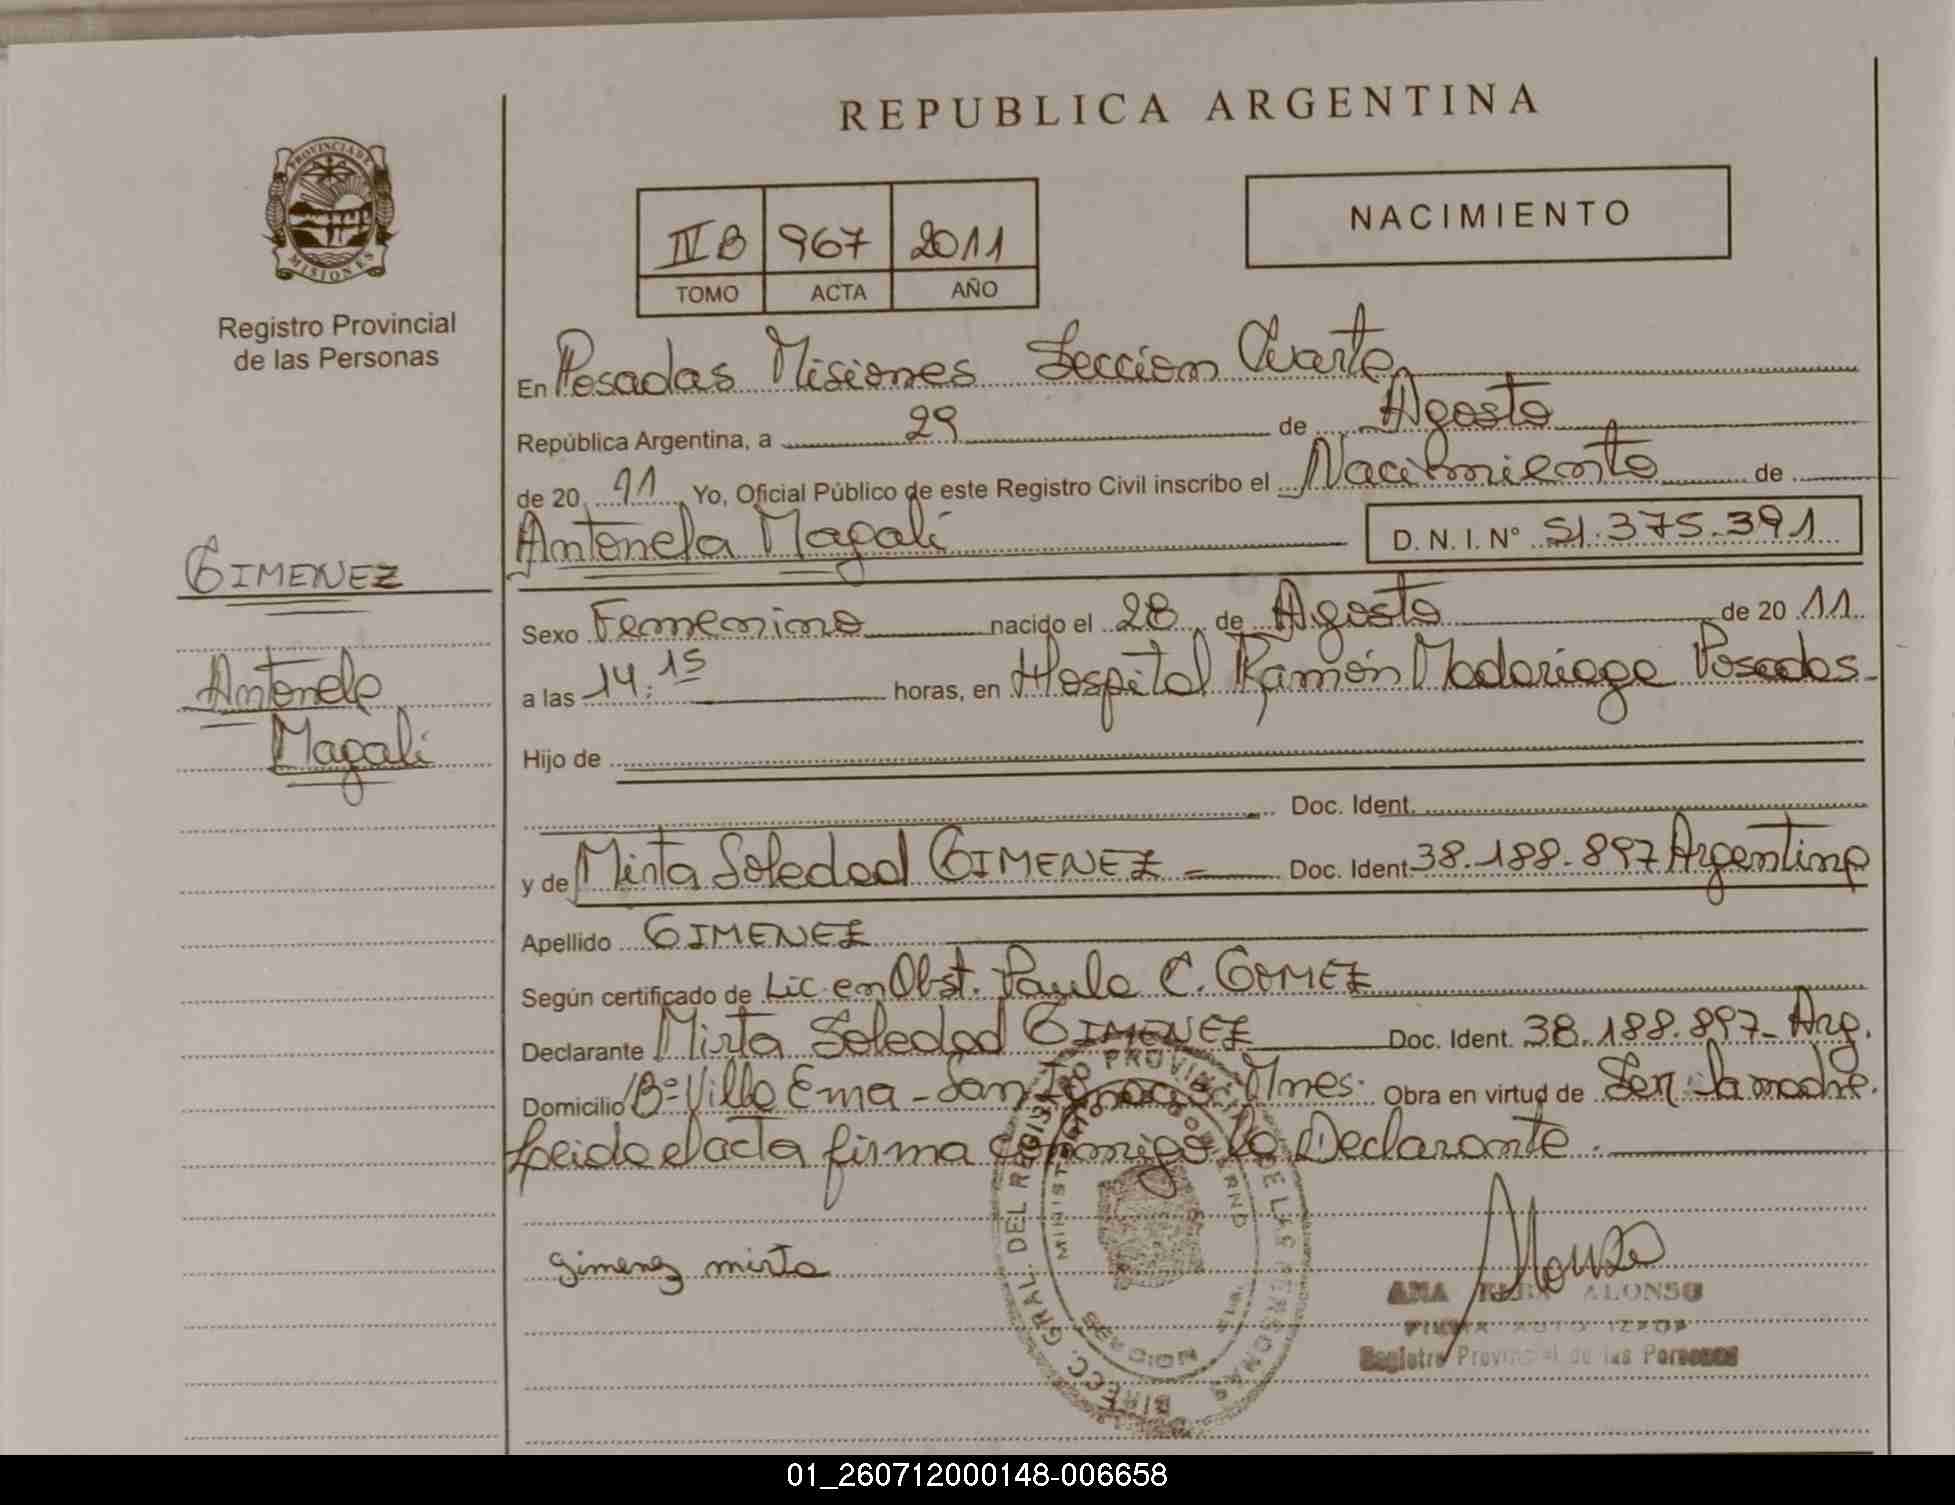 REPUBLICA ARGENTINA
PROVINCIA DE
MISIONES
Registro Provincial
de las Personas
IV B 967 2011
TOMO ACTA AÑO
NACIMIENTO
En Posadas Misiones Seccion Cuarta
República Argentina, a 29 de Agosto
de 20 11 Yo, Oficial Público de este Registro Civil inscribo el Nacimiento de
Antonela Magali D. N. I. N° 51.375.391
GIMENEZ
Antonela
Magali
Sexo Femenino nacido el 28 de Agosto de 20 11
a las 14:15 horas, en Hospital Ramón Madariaga Posadas
Hijo de
Doc. Ident.
y de Mirta Soledad GIMENEZ Doc. Ident 38.188.897 Argentina
Apellido GIMENEZ
Según certificado de Lic en Obst. Paula C. GOMEZ
Declarante Mirta Soledad GIMENEZ Doc. Ident. 38.188.897- Arg.
Domicilio B° Villa Ema - San Ignacio Mnes. Obra en virtud de Ser la madre.
Leida el acta firma conmigo la Declarante.
gimenez mirta
DIRECC. GRAL. DEL REGISTRO PROVINCIAL DE LAS PERSONAS
MINISTERIO GOBIERNO
Alonso
ANA ALONSO
Registro Provincial de las Personas
01_260712000148-006658